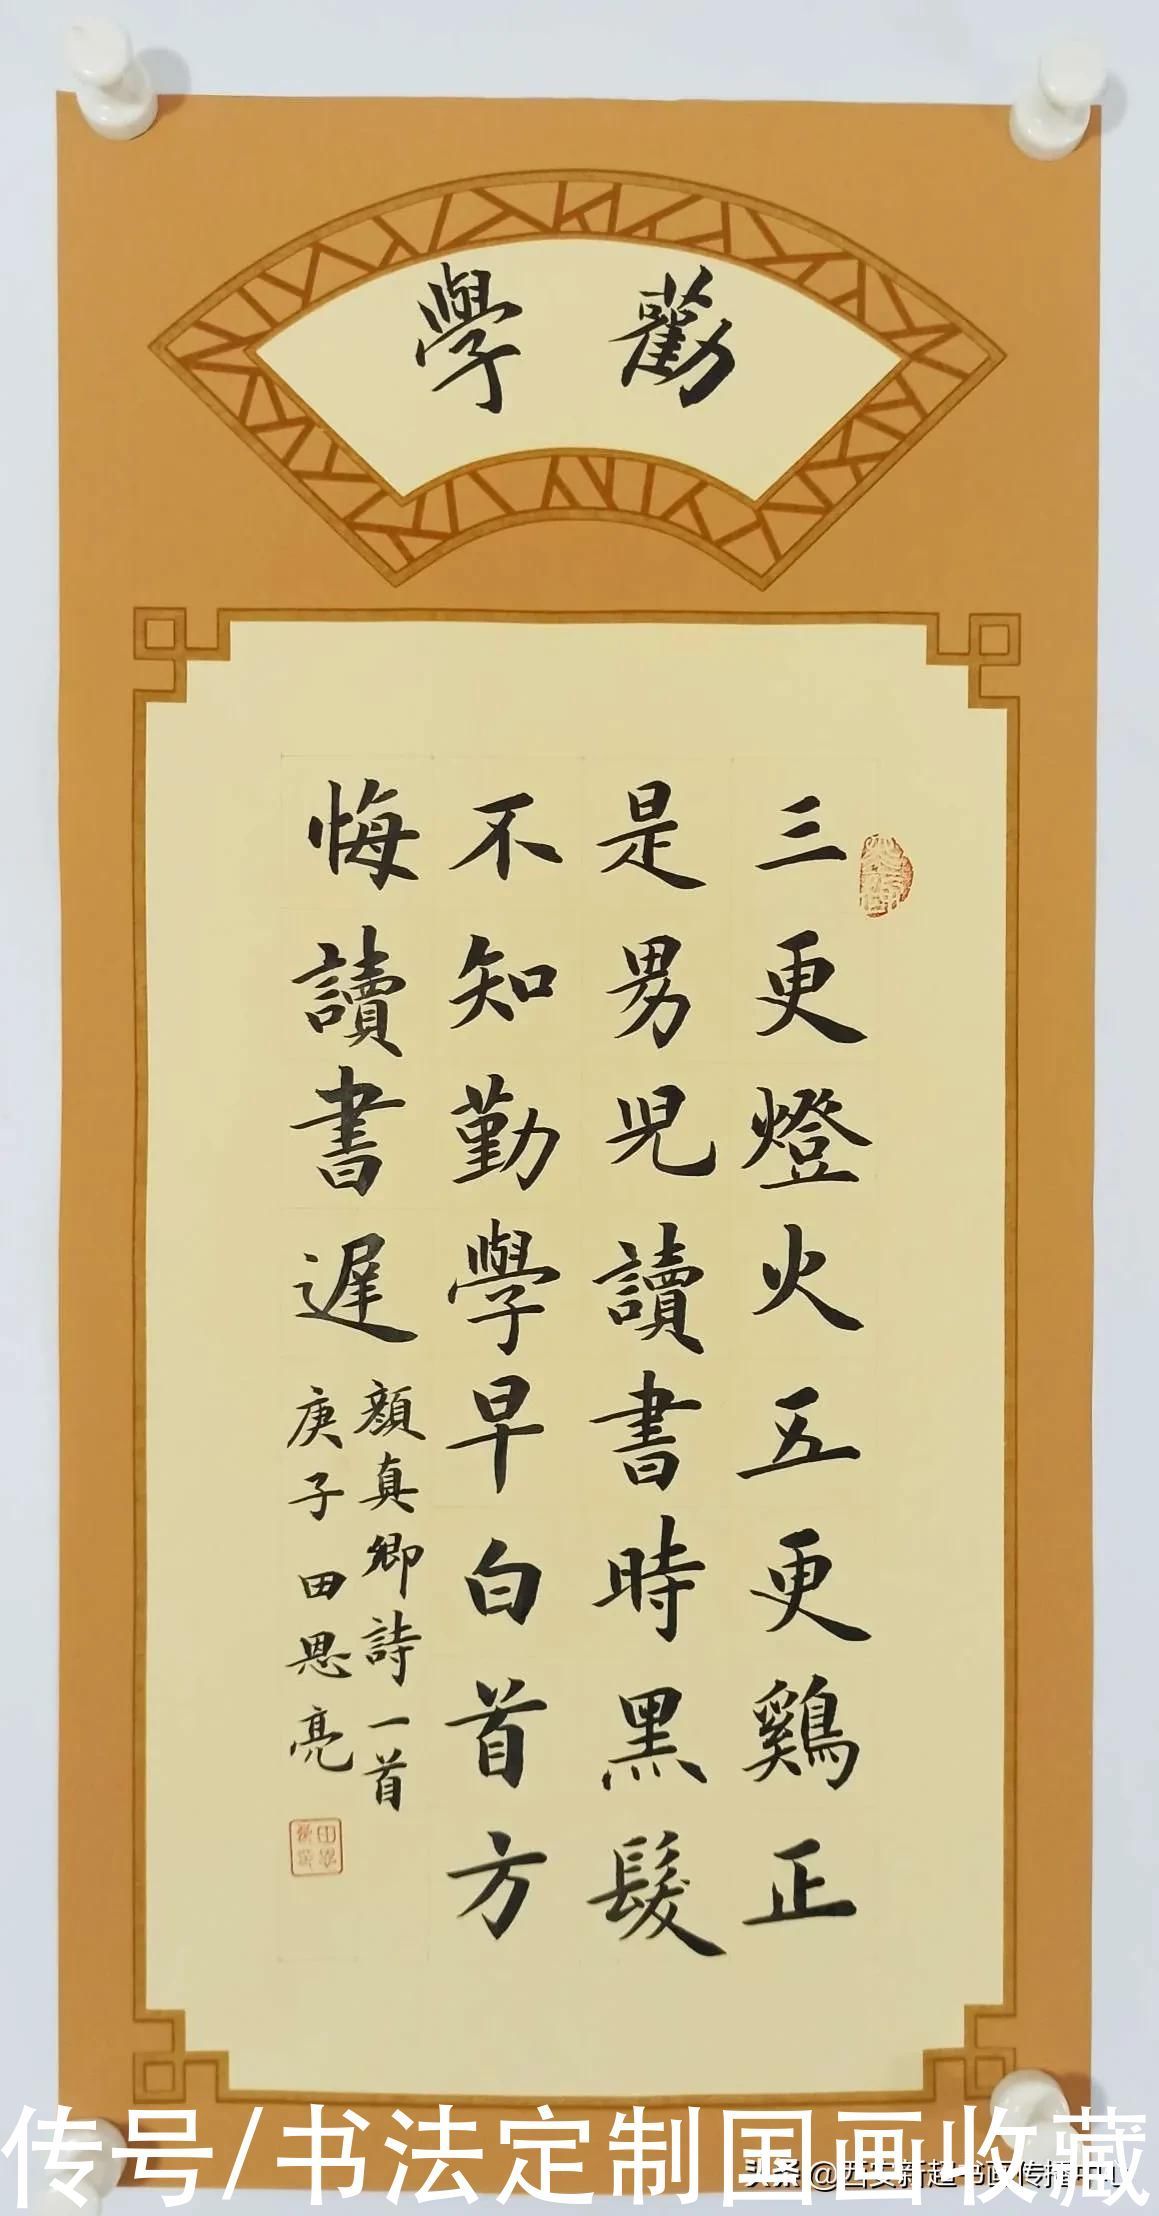 勸學
三更燈火五更鷄正
是男兒讀書時黑髮
不知勤學早白首方
悔讀書遲
顏真卿詩一首
庚子田恩亮
传号/书法定制国画收藏
头条 @西安新超书画传播中心